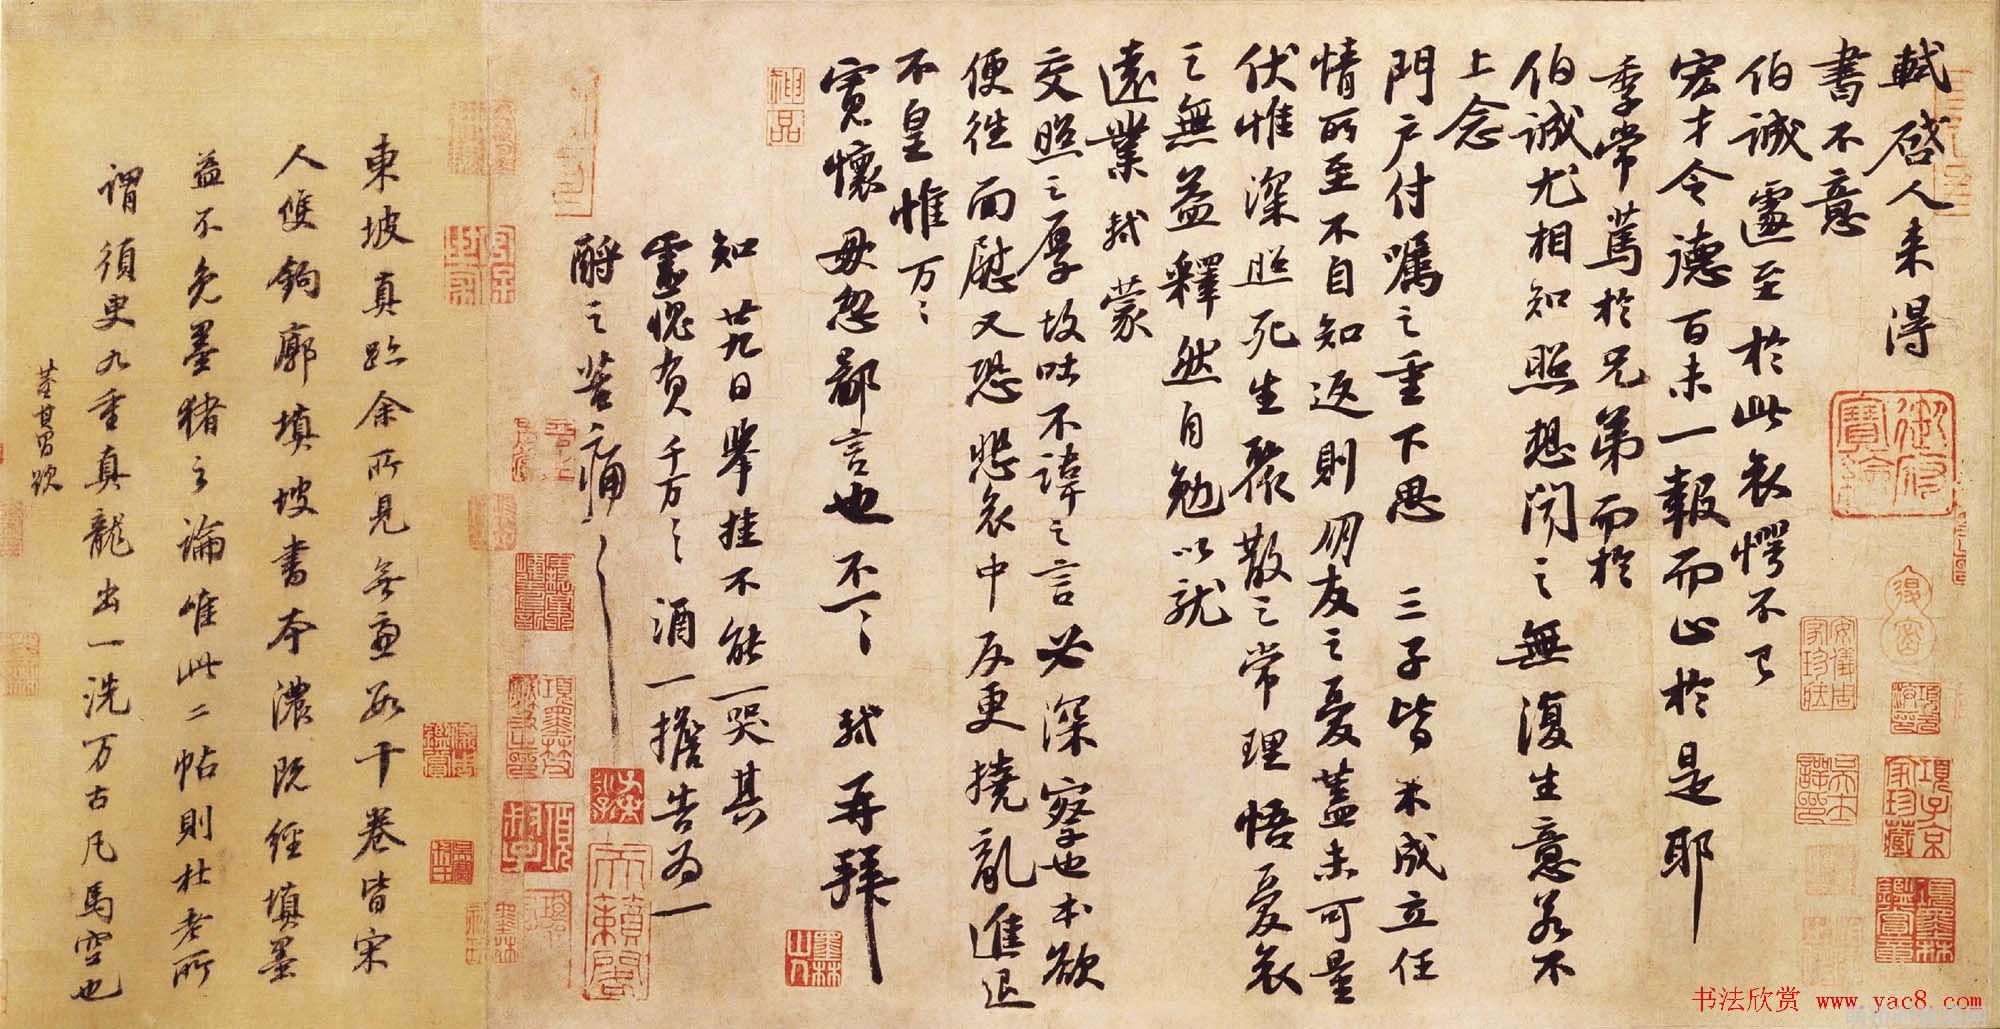 軾啓人来得
書不意
伯誠遽至於此哀愕不已
宏才令德百未一報而止於是耶
季常篤於兄弟而於
伯誠尤相知照想聞之無復生意若不
上念
門户付囑之重下思三子皆未成立任
情所至不自知返則朋友之憂蓋未可量
伏惟深照死生聚散之常理悟憂哀
之無益釋然自勉以就
遠業軾蒙
交照之厚故吐不諱之言必深察也本欲
便往面慰又恐悲哀中反更撓亂進退
不皇惟万々
寬懷毋忽鄙言也不一々軾再拜
知廿九日舉挂不能一哭其
靈愧負千万々酒一擔告為一
酹之苦痛々
神品
御府寶繪
項子京家珍藏
項墨林鑑賞章
安儀周家珍藏
墨林山人
天籟閣
東坡真跡余所見無慮數十卷皆宋
人雙鉤廓填坡書本濃既經填墨
益不免墨豬之論唯此二帖則杜老所
謂須臾九重真龍出一洗万古凡馬空也
董其昌跋
书法欣赏 www.yac8.com